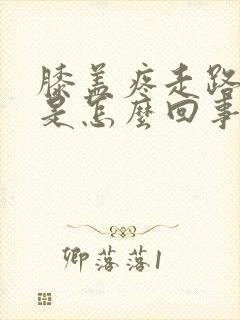 膝盖疼走路
是怎麼回事
卿落落1